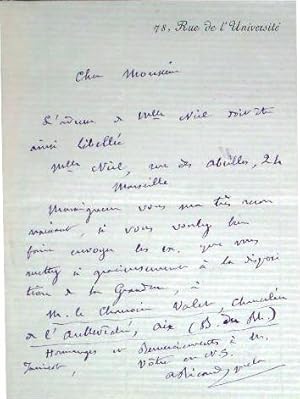 78, Rue de l'Université
Cher Monsieur
L'adresse de Mlle Niel doit être
ainsi libellée
Mlle Niel, rue des Abeilles, 24
Marseille
Monseigneur vous sera très recon
naissant, si vous voulez bien
faire envoyer les ex. que vous
mettez si gracieusement à la dispos
ition de sa Grandeur, à
M. le Chanoine Valet Chancelier
de l'Archevêché, Aix (B. du Rh.)
Hommages et Remerciements à M.
Votre en N.S.
a Ricard,